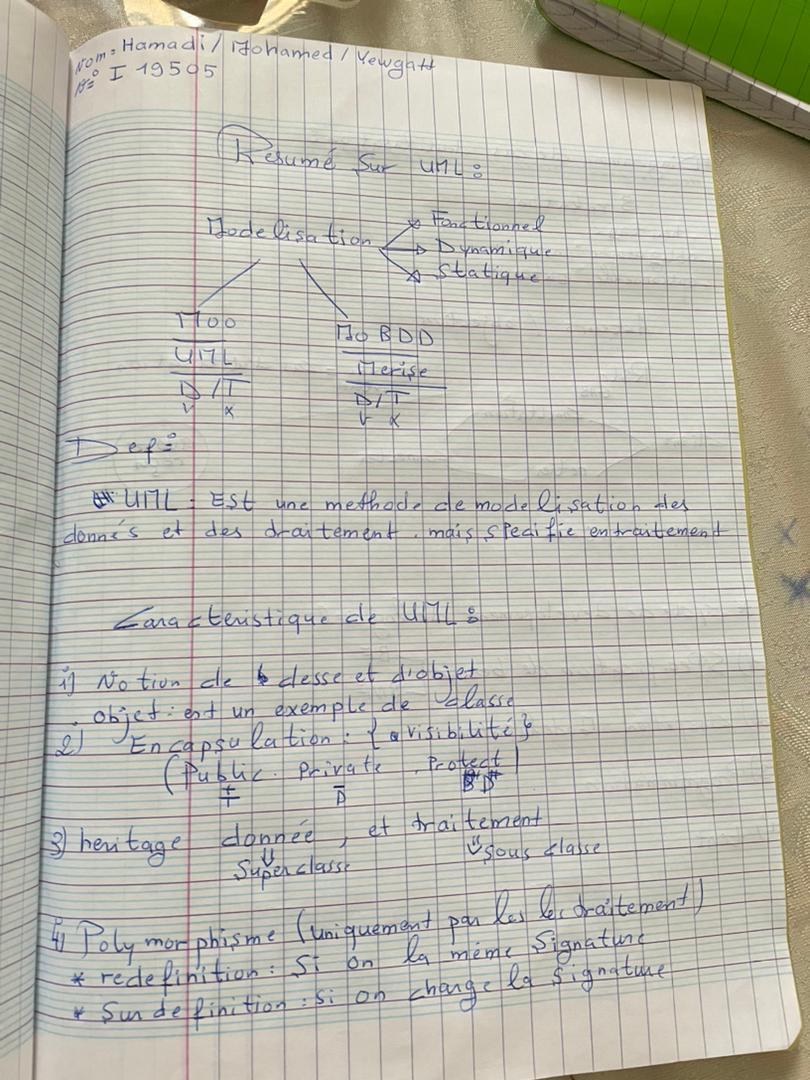 Nom: Hamadi / Mohamed / Yewgatt
N° I 19505
Resumé Sur UML :
Modelisation
Fonctionnel
Dynamique
Statique
MOO
UML
D/T
v x
Mo BDD
Merise
D/T
v x
Def :
UML : Est une methode de modelisation des
donnés et des draitement. mais spedifie entraitement
Caracteristique de UML :
1) Notion de desse et d'objet
objet : est un exemple de classe
2) Encapsulation : { a visibilité }
(Public. Private. Protect)
+ T D
3) heritage donnée, et traitement
Superclasse sous classe
4) Polymorphisme (uniquement par les les draitement)
* redefinition : Si on la même Signature
* Surdefinition : si on change la Signature